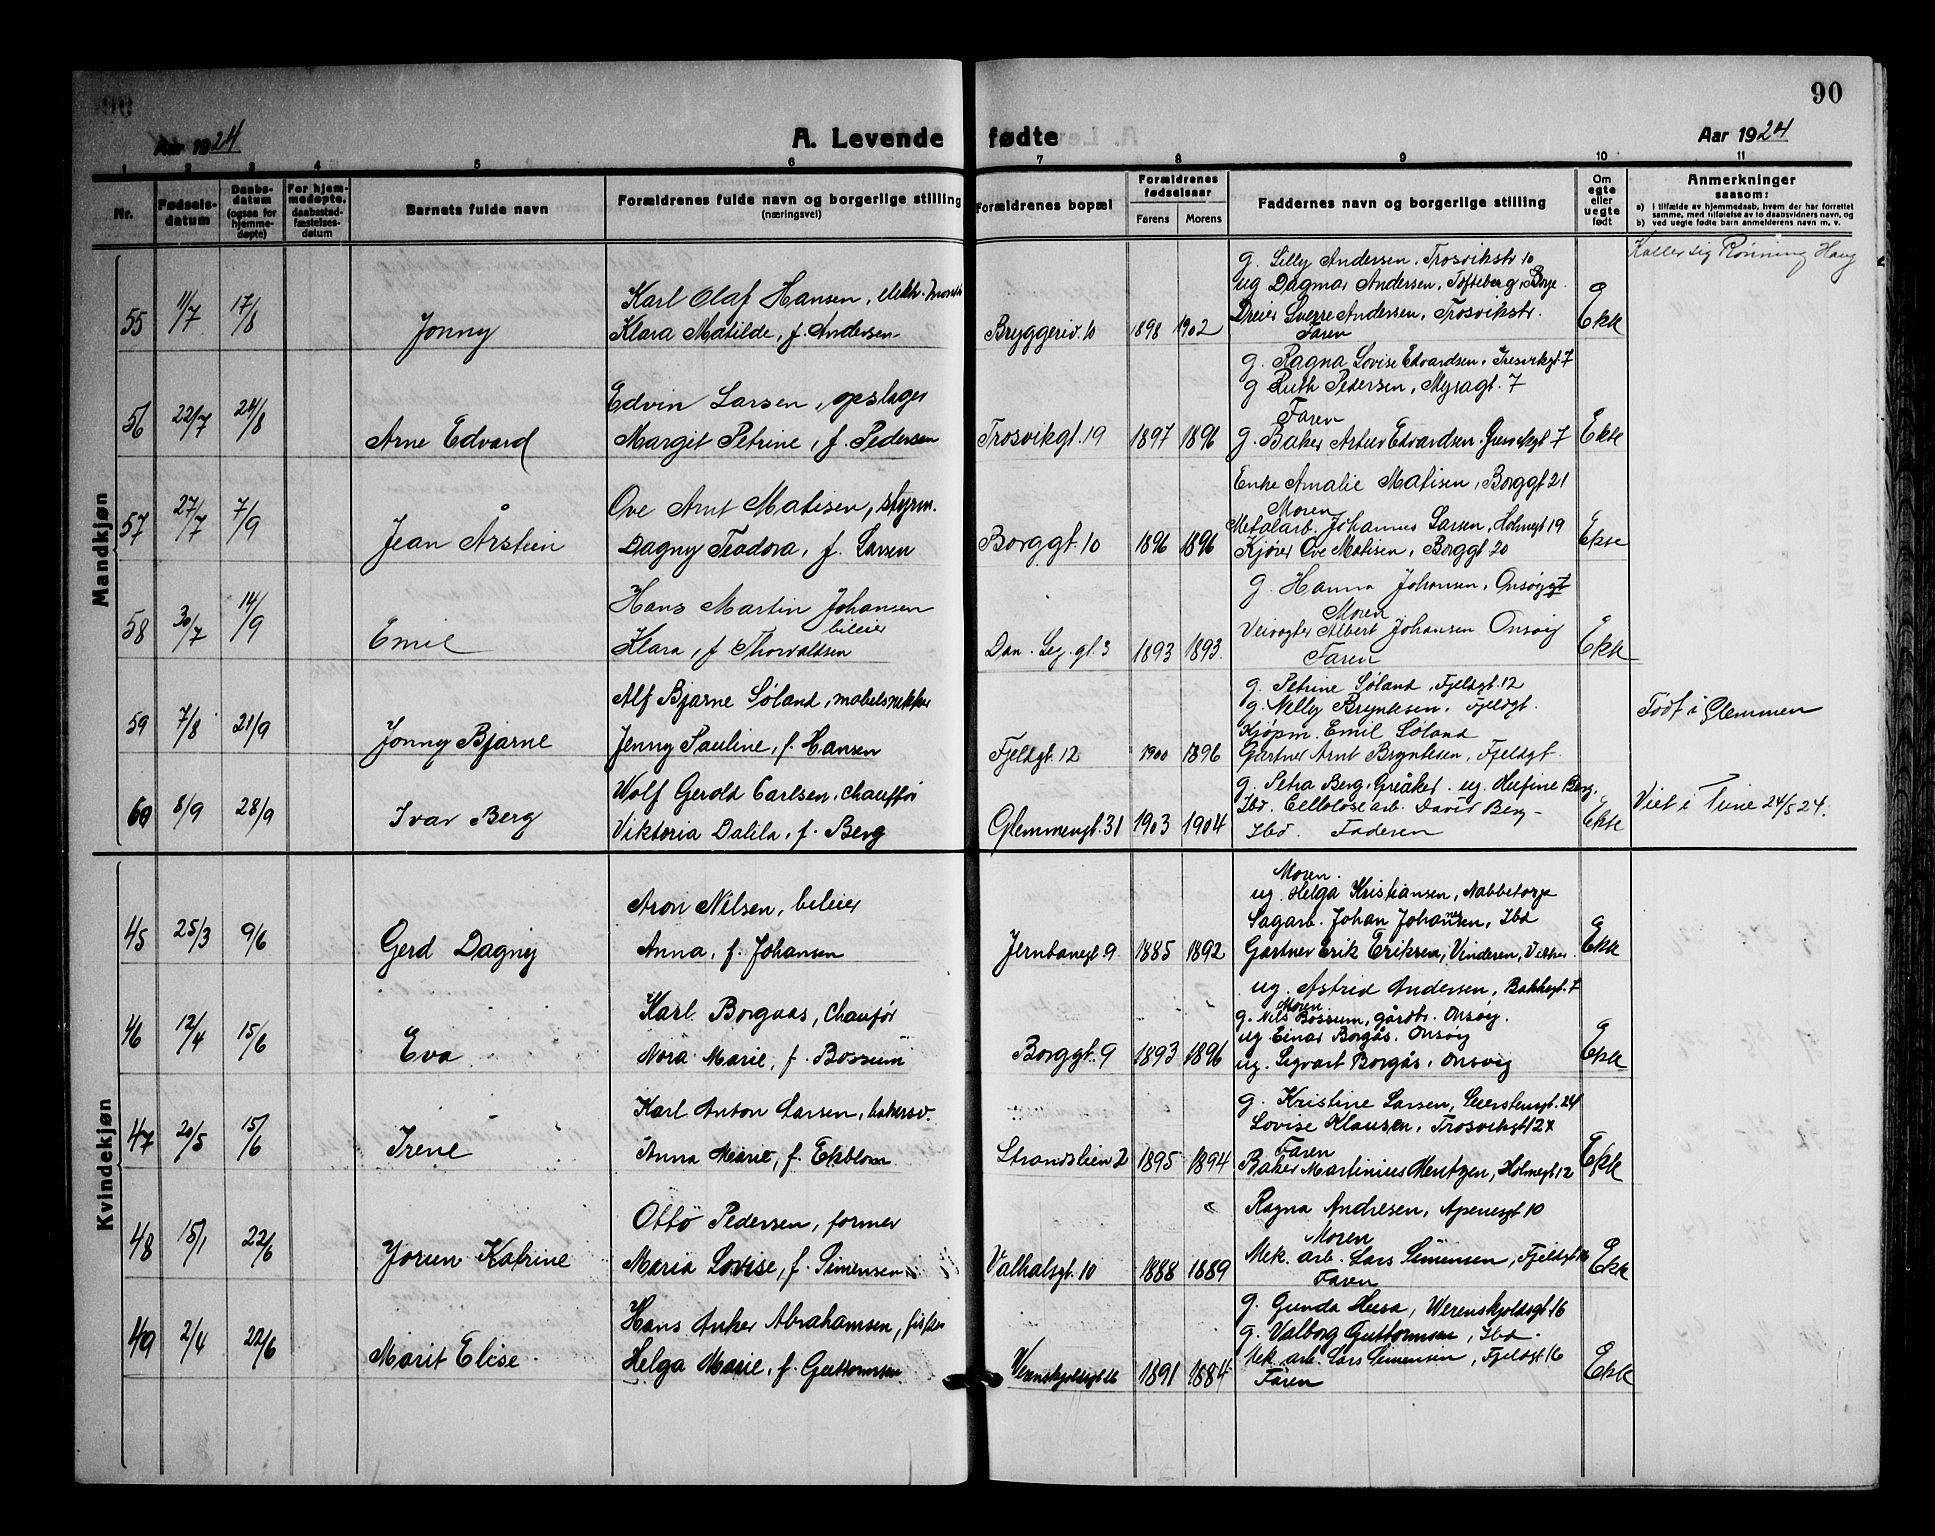 90
Aar 1924
A. Levende fødte
Aar 1924
1 2 3 4 5 6 7 8 9 10 11
Nr.
Fødsels-
datum
Daabs-
datum
(ogsaa for
hjemme-
døpte)
For hjem-
medøpte,
daabsstad-
fæstelses-
datum
Barnets fulde navn
Forældrenes fulde navn og borgerlige stilling
(næringsvei)
Forældrenes bopæl
Forældrenes
fødselsaar
Farens Morens
Faddernes navn og borgerlige stilling
Om
egte
eller
uegte
født
Anmerkninger
saasom:
a) i tilfælde av hjemmedaab, hvem der har forrettet
samme, med tilføielse av to daabsvidners navn, og
b) ved uegte fødte barn anmelderens navn m. v.
Mandkjøn
55 11/7 17/8 Jonny
Karl Olaf Hansen, elektr.
Klara Matilde, f. Andersen
Bryggeriv. 10 1898 1902
g. Lilly Andersen, Trosvikstr 10
ug Dagmar Andersen, Tofteberg, Borge
Dreier Sverre Andersen, Trosvikstr.
Faren
Ekte
Kaller sig Rønning Haug
56 22/7 24/8 Arne Edvard
Edvin Larsen, opslager
Margit Petrine, f. Pedersen
Trosvikgt. 19 1897 1896
g. Ragna Lovise Edvardsen, 7
g Ruth Pedersen, Myragt. 7
Faren
g. Baker Artur Edvardsen 7
Ekte
57 27/7 7/9 Jean Årstein
Ove Arnt Matisen, styrm.
Dagny Teodora, f. Larsen
Borggt. 10 1896 1896
Enke Amalie Matisen, Borggt 21
Moren
Metalarb. Johannes Larsen, Holmegt 19
Kjører Ove Matisen, Borggt 20
Ekte
58 30/7 14/9 Emil
Hans Martin Johansen
bileier
Klara, f Thorvaldsen
Dan. Leg. gt. 3 1893 1893.
g. Hanna Johansen, Onsøygt
Moren
Veivogter Albert Johansen Onsøy
Faren
Ekte
59 7/8 21/9 Jonny Bjarne
Alf Bjarne Søland, møbelsnekker
Jenny Pauline, f. Hansen
Fjeldgt. 12 1900 1896
g. Petrine Søland, Fjeldgt. 12
g. Nelly Bryntesen, Fjeldgt.
Kjøpm. Emil Søland
Gartner Arnt Bryntesen, Fjeldgt.
Født i Glemmen
60 8/9 28/9 Ivar Berg
Wolf Gerold Carlsen, chauffør
Viktoria Dalila, f. Berg
Glemmengt. 31 1903 1904
g. Petra Berg, Greåker. ug. Berg,
Ibd. Cellulose arb. David Berg
Ibd. Faderen
Ekte
Viet i Tune 24/5 24.
Kvindekjøn
45 25/3 9/6 Gerd Dagny
Aron Nilsen, bileier
Anna, f. Johansen
Jernbanegt. 9 1885 1892
Moren.
ug. Helga Kristiansen, Nabbetorpe
Sagarb. Johan Johannsen, Ibd
Gartner Erik Eriksen, Vinderen, V. Aker.
Ekte
46 12/4 15/6 Eva
Karl Borgaas, chaufør
Nora Marie, f. Bossum
Borggt. 9 1893 1896
ug. Astrid Andersen, Bakkegt. 7
Moren
g. Nils Bossum, gårdbr. Onsøy.
ug. Einar Borgås, Onsøy
ug. Sigvart Borgås, Onsøy
Ekte
47 20/5 15/6 Irene
Karl Anton Larsen, bakersv.
Anna Marie, f. Ekblom
Strandslien 2 1895 1894
g. Kristine Larsen, 24
Lovise Klausen, Trosvikgt 12
Faren
Baker Martinius Mentzen, Holmegt 12
Ekte
48 15/1 22/6 Jorun Katrine
Otto Pedersen, former
Maria Lovise, f. Simensen
Valhalsgt. 10 1888 1889
Ragna Andresen, Apenesgt 10
Moren
Mek. arb. Lars Simensen, Fjeldgt 16
Faren
Ekte
49 2/4 22/6 Marit Elise
Hans Anker Abrahamsen, fisker
Helga Marie, f. Guttormsen
Werenskjoldsgt 16 1891 1884
g. Gunda Husa, Werenskjoldsgt 16
g. Valborg Guttormsen, Ibd.
Mek. arb. Lars Simensen, Fjeldgt 16
Faren
Ekte